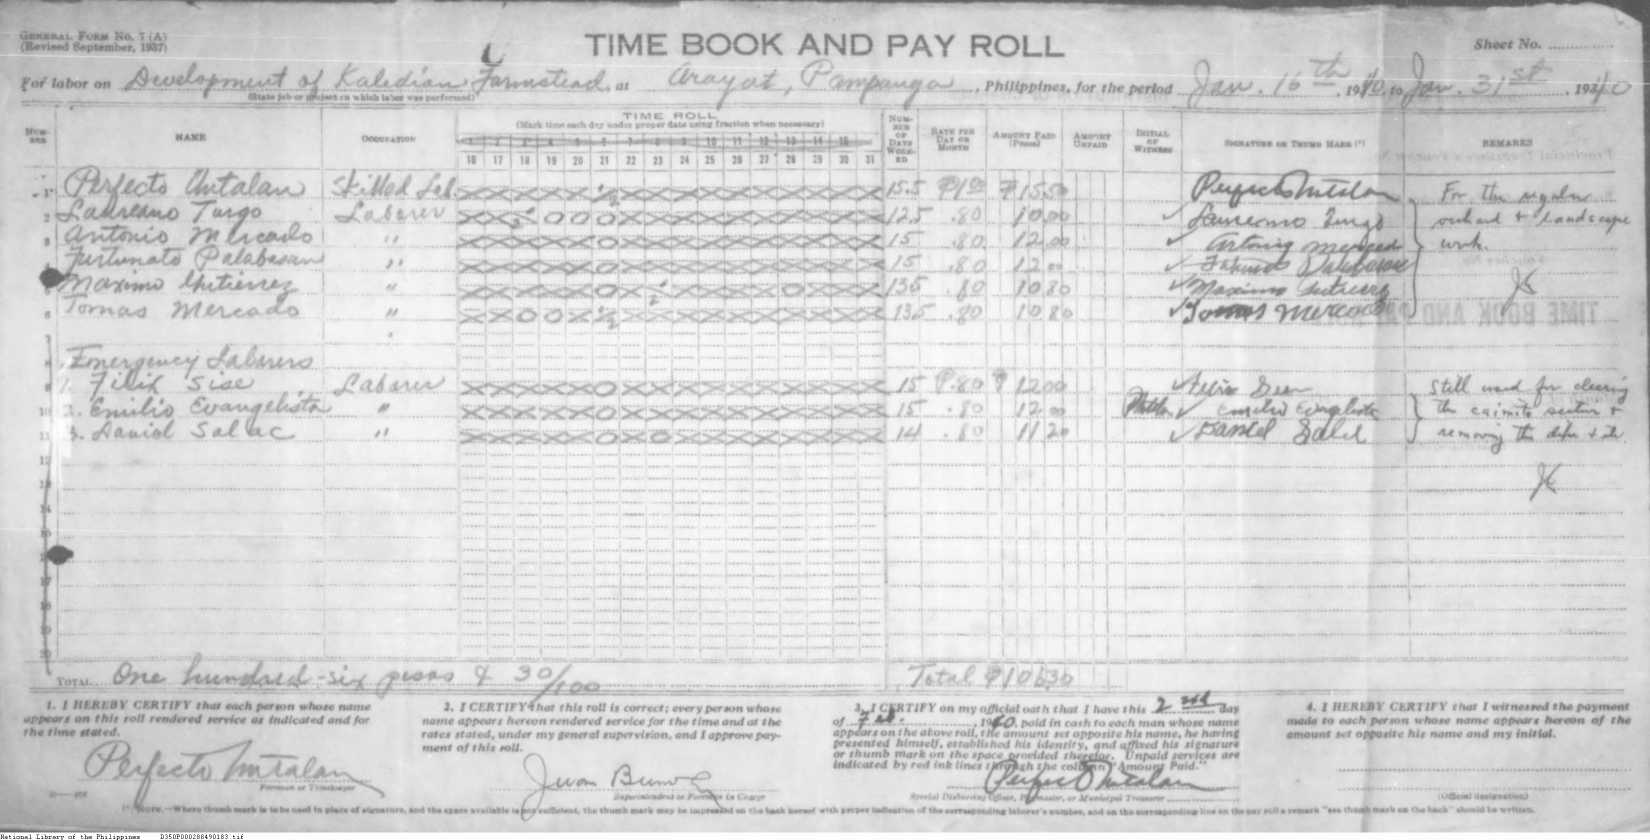 GENERAL FORM NO. 7 (A)
(Revised September, 1937)
TIME BOOK AND PAY ROLL
Sheet No.
For labor on Development of Kaledian Farmstead, at Arayat, Pampanga, Philippines, for the period Jan. 16th, 1940, to Jan. 31st, 1940
(State job or project on which labor was performed)
NUMBER NAME OCCUPATION TIME ROLL NUMBER OF DAYS WORKED RATE PER DAY OR MONTH AMOUNT PAID (Pesos) AMOUNT UNPAID INITIAL OF WITNESS SIGNATURE OR THUMB MARK (*) REMARKS
(Mark time each day under proper date using fraction when necessary)
1 2 3 4 5 6 7 8 9 10 11 12 13 14 15
16 17 18 19 20 21 22 23 24 25 26 27 28 29 30 31
1 Perfecto Mutalan Skilled Lab. 15.5 ₱1.00 ₱15.50 Perfecto Mutalan For the regular
2 Laureano Tungo Laborer 12.5 .80 10.00 Laureano Tungo orchard & landscape
3 Antonio Mercado " 15 .80 12.00 Antonio Mercado work.
4 Furtunato Palabasan " 15 .80 12.00
5 Maximo Gutierrez " 13.5 .80 10.80 Maximo Gutierrez
6 Tomas Mercado " 13.5 .80 10.80 Tomas Mercado
7
8 Emergency Laborers
9 1. Filix Sise Laborer 15 ₱.80 ₱12.00 Still used for clearing
10 2. Emilio Evangelista " 15 .80 12.00 Emilio Evangelista the caimito section &
11 3. Daniel Salac " 14 .80 11.20 Daniel removing the
12
13
14
15
16
17
18
19
20
TOTAL One hundred-six pesos & 30/100 Total ₱106.30
1. I HEREBY CERTIFY that each person whose name
appears on this roll rendered service as indicated and for
the time stated.
Perfecto Mutalan
Foreman or Timekeeper
2. I CERTIFY that this roll is correct; every person whose
name appears hereon rendered service for the time and at the
rates stated, under my general supervision, and I approve pay-
ment of this roll.
Juan
Superintendent or Foreman in Charge
3. I CERTIFY on my official oath that I have this 2nd day
of Feb., 1940, paid in cash to each man whose name
appears on the above roll, the amount set opposite his name, he having
presented himself, established his identity, and affixed his signature
or thumb mark on the space provided therefor. Unpaid services are
indicated by red ink lines through the column "Amount Paid."
Perfecto Mutalan
Special Disbursing Officer, Paymaster, or Municipal Treasurer
4. I HEREBY CERTIFY that I witnessed the payment
made to each person whose name appears hereon of the
amount set opposite his name and my initial.
(Official designation)
(*) NOTE.—Where thumb mark is to be used in place of signature, and the space available is not sufficient, the thumb mark may be impressed on the back hereof with proper indication of the corresponding laborer's number, and on the corresponding line on the pay roll a remark "see thumb mark on the back" should be written.
National Library of the Philippines D350P000288490183.tif